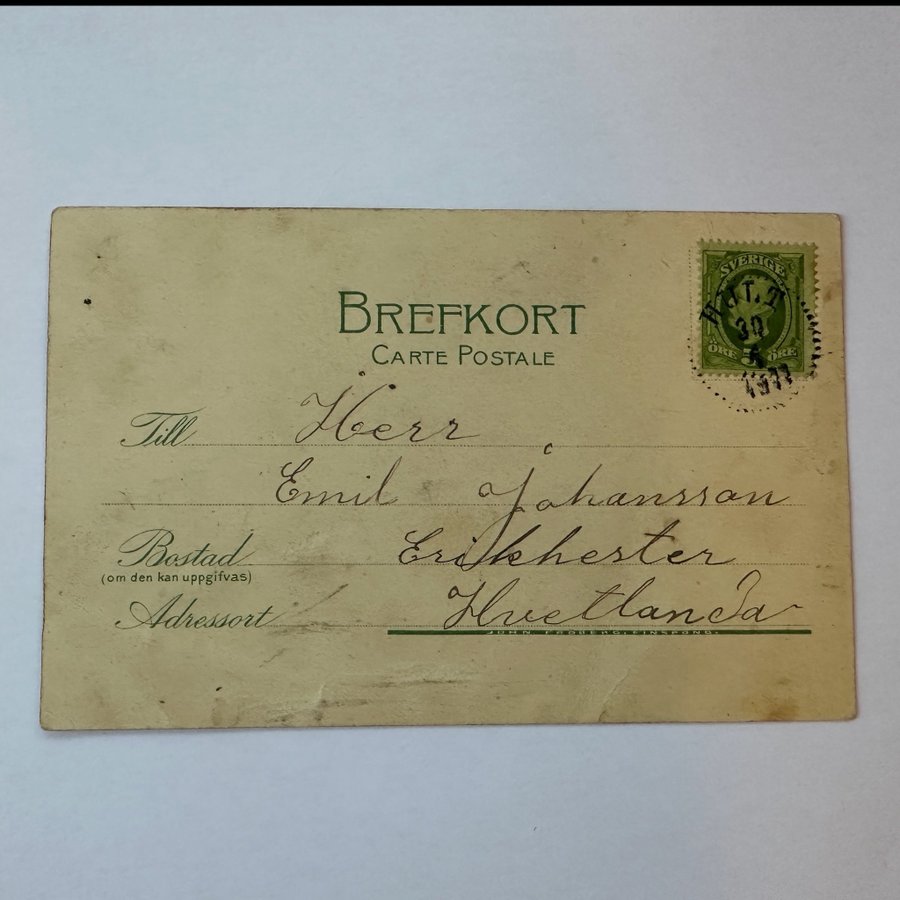 BREFKORT
CARTE POSTALE
SVERIGE
ÖRE 5 ÖRE
30
1911
Till Herr
Emil Johansson
Bostad Erikhester
(om den kan uppgifvas)
Adressort Hvetlanda
JOHN FRÖBERG, FINSPONG.